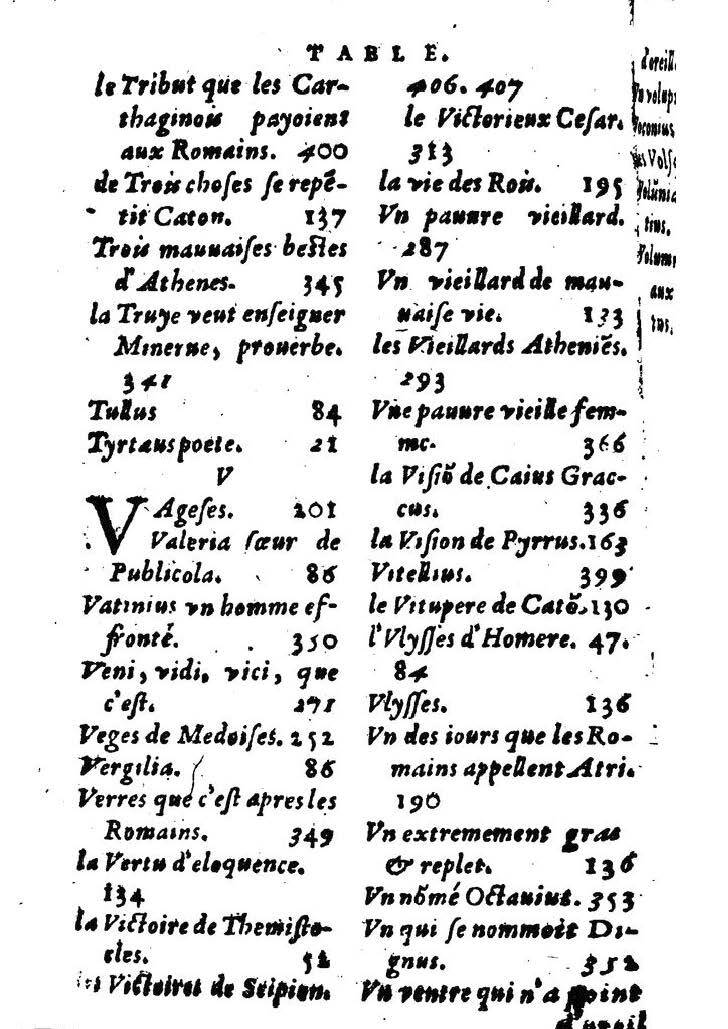 TABLE.
le Tribut que les Car-
thaginois payoient
aux Romains. 400
de Trois choses se repẽ-
tit Caton. 137
Trois mauuaises bestes
d'Athenes. 345
la Truye veut enseigner
Minerue, prouerbe.
341
Tullus 84
Tyrtæus poete. 21
V
VAgeses. 201
Valeria sœur de
Publicola. 86
Vatinius vn homme ef-
fronté. 350
Veni, vidi, vici, que
c'est. 271
Veges de Medoises. 252
Vergilia. 86
Verres que c'est apres les
Romains. 349
la Vertu d'eloquence.
134
la Victoire de Themisto-
cles. 52
Victoires de Scipion.
406. 407
le Victorieux Cesar.
313
la vie des Rois. 195
Vn pauure vieillard.
287
Vn vieillard de mau-
uaise vie. 133
les Vieillards Atheniẽs.
293
Vne pauure vieille fem-
me. 366
la Visiõ de Caius Grac-
cus. 336
la Vision de Pyrrus. 163
Vitellius. 399
le Vitupere de Catõ. 130
l'Vlysses d'Homere. 47.
84
Vlysses. 136
Vn des iours que les Ro-
mains appellent Atri.
190
Vn extremement gras
& replet. 136
Vn nõmé Octauius. 353
Vn qui se nommoit Di-
gnus. 352
Vn ventre qui n'a point
d'oreill
Vn volup
Voconius
Vols
Volũnia
tius.
Volum
aux
tus.